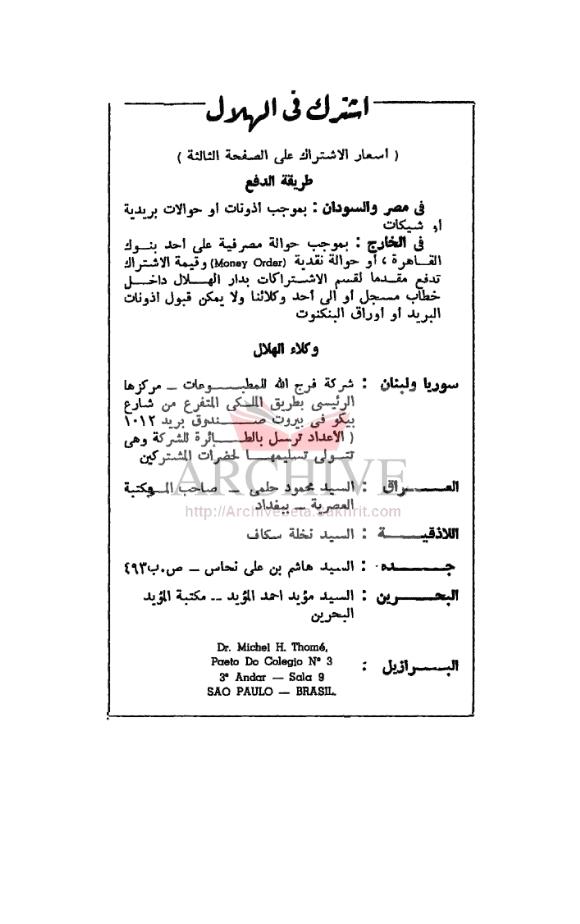 اشترك في الهلال
( أسعار الاشتراك على الصفحة الثالثة )
طريقة الدفع
في مصر والسودان : بموجب اذونات او حوالات بريدية
أو شيكات
في الخارج : بموجب حوالة مصرفية على احد بنوك
القاهرة ، أو حوالة نقدية (Money Order) وقيمة الاشتراك
تدفع مقدما لقسم الاشتراكات بدار الهلال داخل
خطاب مسجل أو الى أحد وكلائنا ولا يمكن قبول اذونات
البريد أو أوراق البنكنوت
وكلاء الهلال
سوريا ولبنان : شركة فرج الله للمطبوعات – مركزها
الرئيسي بطريق الملكى المتفرع من شارع
بيكو فى بيروت صندوق بريد ١٠١٢
( الأعداد ترسل بالطائرة للشركة وهى
تتولى تسليمها لحضرات المشتركين
العراق : السيد محمود حلمى – صاحب المكتبة
العصرية – ببغداد
اللاذقية : السيد نخلة سكاف
جده : السيد هاشم بن على نحاس – ص.ب ٤٩٣
البحرين : السيد مؤيد احمد المؤيد – مكتبة المؤيد
البحرين
البرازيل :
Dr. Michel H. Thomé,
Paeto Do Colegio Nº 3
3º Andar — Sala 9
SAO PAULO — BRASIL.
ARCHIVE
http://Archivebeta.Sakhrit.com